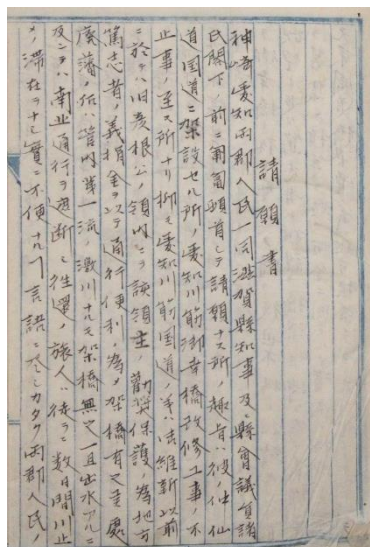 請願書
神崎愛知両郡人民一同滋賀縣知事及ヒ縣會議員諸
氏閣下ノ前ニ匍匐頓首シテ請願ナス所ノ趣旨ハ彼ノ仙
道国道ニ架設セル所ノ愛知川筋御幸橋改修工事ノ不
止事ノ至ス所ナリ抑モ愛知川筋国道ノ義ハ御維新以前
ニ於テハ旧彦根公ノ領内ニテ該領主ノ勧奨保護ノ為地方
篤志者ノ義捐金ヲ以テ通行便利ノ為メ架橋有之候處
廃藩ノ后ハ管内第一流ノ激川ナルモ架橋無之一旦出水アルニ
及ンテハ南北通行ヲ遮断シ往還ノ旅人ハ徒ラニ数日間川止
メノ滞在ヲナシ實ニ不便ナルヿ言語ニ尽シカタク両郡人民ノ